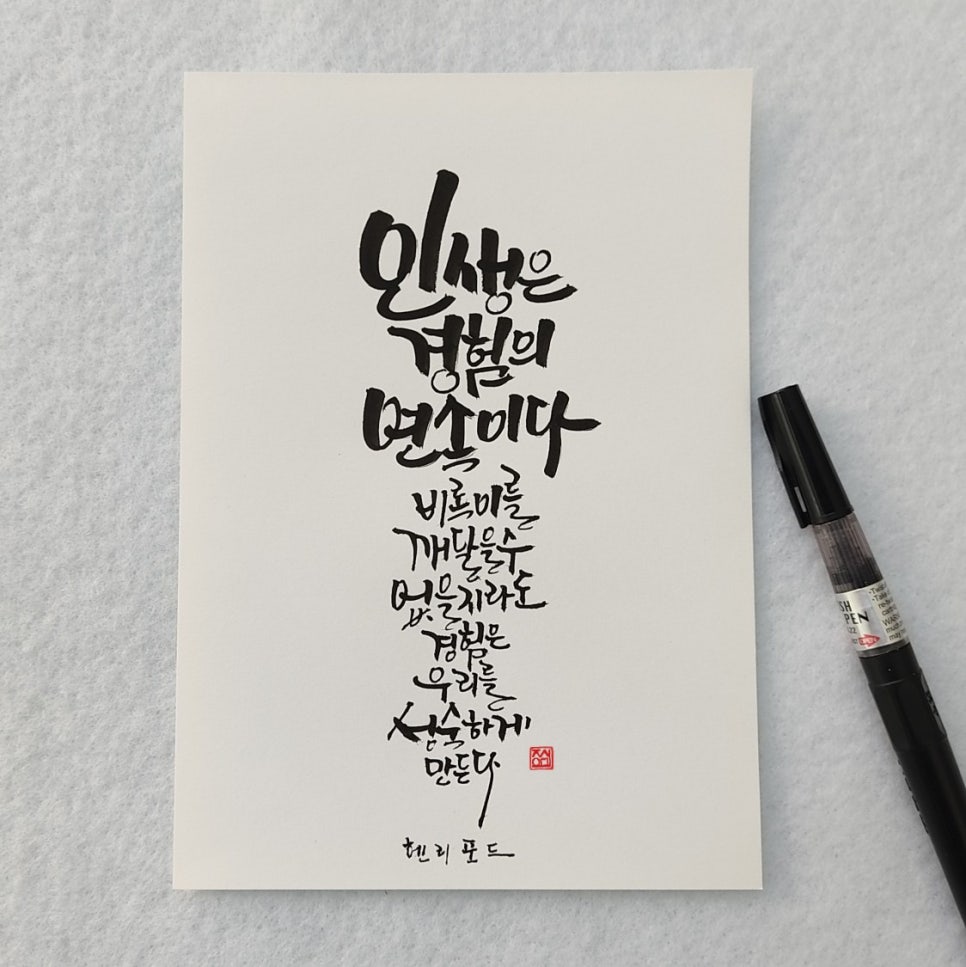 인생은
경험의
연속이다
비록 이를
깨달을 수
없을지라도
경험은
우리를
성숙하게
만든다
헨리 포드
PEN